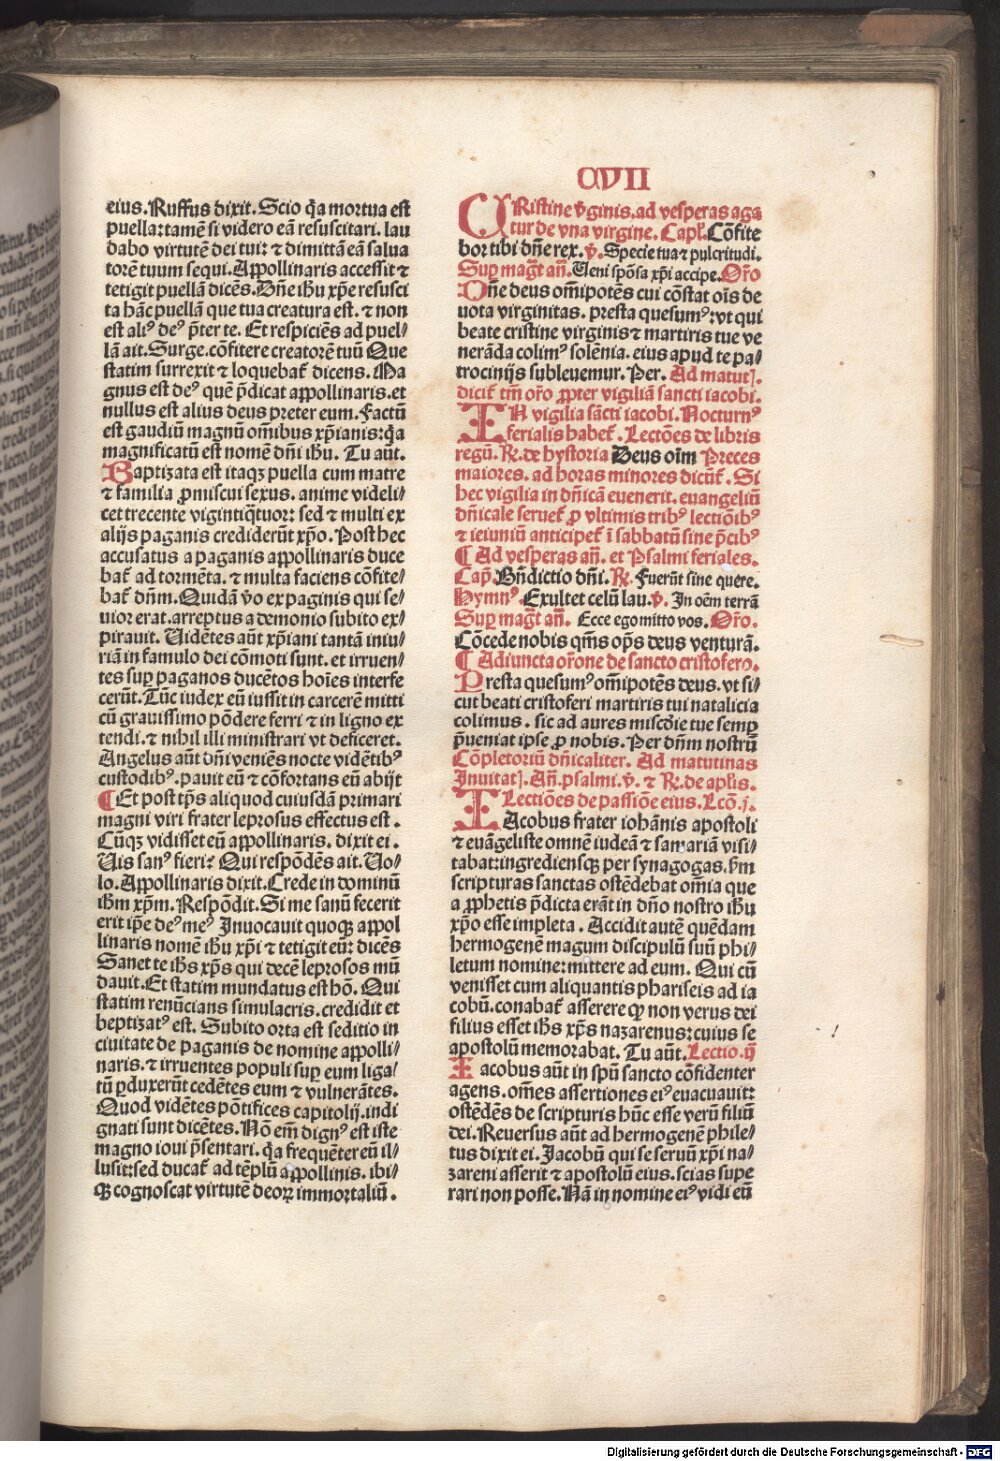 CVII
eius. Ruffus dixit. Scio q̄a mortua est
puella: tamē si videro eā resuscitari. lau
dabo virtutē dei tui: ⁊ dimittā eā salua
torē tuum sequi. Appollinaris accessit ⁊
tetigit puellā dicēs. Dn̄e ihū xp̄e resusci
ta hāc puellā que tua creatura est. ⁊ non
est ali⁹ de⁹ p̄ter te. Et respiciēs ad puel/
lā ait. Surge. cōfitere creatorē tuū Que
statim surrexit ⁊ loquebat̄ dicens. Ma
gnus est de⁹ quē p̄dicat appollinaris. et
nullus est alius deus preter eum. Factū
est gaudiū magnū om̄ibus xp̄ianis: q̄a
magnificatū est nomē dn̄i ihū. Tu aūt.
Baptizata est itaqꝫ puella cum matre
⁊ familia ꝓmiscui sexus. anime videli/
cet trecente vigintiq̄tuor: sed ⁊ multi ex
alijs paganis crediderūt xp̄o. Post hec
accusatus a paganis appollinaris duce
bat̄ ad tormēta. ⁊ multa faciens cōfite/
bat̄ dn̄m. Quidā v̄o ex paginis qui se/
uior erat. arreptus a demonio subito ex/
pirauit. Uidētes aūt xp̄iani tantā iniu/
riā in famulo dei cōmoti sunt. et irruen/
tes suꝑ paganos ducētos hoīes interfe
cerūt. Tūc iudex eū iussit in carcerē mitti
cū grauissimo pōdere ferri ⁊ in ligno ex
tendi. ⁊ nihil illi ministrari vt deficeret.
Angelus aūt dn̄i veniēs nocte vidētib⁹
custodib⁹. pauit eū ⁊ cōfortans eū abijt
¶ Et post tp̄s aliquod cuiusdā primari
magni viri frater leprosus effectus est.
Cūqꝫ vidisset eū appollinaris. dixit ei.
Uis san⁹ fieri? Qui respōdēs ait. Uo/
lo. Appollinaris dixit. Crede in dominū
ihm̄ xp̄m. Respōdit. Si me sanū fecerit
erit ip̄e de⁹ me⁹ Inuocauit quoqꝫ appol
linaris nomē ihū xp̄i ⁊ tetigit eū: dicēs
Sanet te ih̄s xp̄s qui decē leprosos mū
dauit. Et statim mundatus est hō. Qui
statim renūcians simulacris. credidit et
beptizat⁹ est. Subito orta est seditio in
ciuitate de paganis de nomine appolli/
naris. ⁊ irruentes populi suꝑ eum liga/
tū ꝑduxerūt cedētes eum ⁊ vulnerātes.
Quod vidētes pōtifices capitolij. indi
gnati sunt dicētes. Nō em̄ dign⁹ est iste
magno ioui p̄sentari. q̄a frequēter eū il/
lusit: sed ducat̄ ad tēplū appollinis. ibi/
qꝫ cognoscat virtutē deoꝝ immortaliū.
CRistine v̄ginis. ad vesperas aga
tur de vna virgine. Capl̄. Cōfite
bor tibi dn̄e rex. v̄. Specie tua ⁊ pulcritudi.
Suꝑ mag̅t an̄. Ueni spōsa xp̄i accipe. Or̄o
Dn̄e deus om̄ipotēs cui cōstat oīs de
uota virginitas. presta quesum⁹: vt qui
beate cristine virginis ⁊ martiris tue ve
nerāda colim⁹ solēnia. eius apud te pa/
trocinijs subleuemur. Per. Ad matut̄.
dicit̄ tm̄ or̄o ꝓpter vigiliā sancti iacobi.
IN vigilia sācti iacobi. Nocturn⁹
ferialis habet̄. Lectōes de libris
regū. R̄. de hystoria Deus oīm Preces
maiores. ad horas minores dicūt̄. Si
hec vigilia in dn̄icā euenerit. euangeliū
dn̄icale seruet̄ ꝓ vltimis trib⁹ lectiōib⁹
⁊ ieiuniū anticipet̄ ī sabbatū sine p̄cib⁹
¶ Ad vesperas an̄. et Psalmi feriales.
Cap̄. Bn̄dictio dn̄i. R̄. Fuerūt sine quere.
Hymn⁹. Exultet celū lau. v̄. In oēm terrā
Suꝑ mag̅t an̄. Ecce ego mitto vos. Or̄o.
Cōcede nobis qm̄s op̄s deus venturā.
¶ Adiuncta or̄one de sancto cristofero.
Presta quesum⁹ om̄ipotēs deus. vt si/
cut beati cristoferi martiris tui natalicia
colimus. sic ad aures mīscd̄ie tue semꝑ
p̄ueniat ipse ꝓ nobis. Per dn̄m nostrū
Cōpletoriū dn̄icaliter. Ad matutinas
Inuitat̄. An̄. psalmi. v̄. ⁊ R̄. de apl̄is.
Lectiōes de passiōe eius. Lcō. j.
IAcobus frater iohānis apostoli
⁊ euāgeliste omnē iudeā ⁊ samariā visi/
tabat: ingrediensqꝫ per synagogas. s̄m
scripturas sanctas ostēdebat om̄ia que
a ꝓphetis p̄dicta erāt in dn̄o nostro ihū
xp̄o esse impleta. Accidit autē quēdam
hermogenē magum discipulū suū phi/
letum nomine: mittere ad eum. Qui cū
venisset cum aliquantis phariseis ad ia
cobū. conabat̄ asserere qꝙ non verus dei
filius esset ih̄s xp̄s nazarenus: cuius se
apostolū memorabat. Tu aūt. Lectio. ij
Iacobus aūt in spū sancto cōfidenter
agens. om̄es assertiones ei⁹ euacuauit:
ostēdēs de scripturis hūc esse verū filiū
dei. Reuersus aūt ad hermogenē phile/
tus dixit ei. Jacobū qui se seruū xp̄i na/
zareni asserit ⁊ apostolū eius. scias supe
rari non posse. Nā in nomine ei⁹ vidi eū
Digitalisierung gefördert durch die Deutsche Forschungsgemeinschaft - DFG